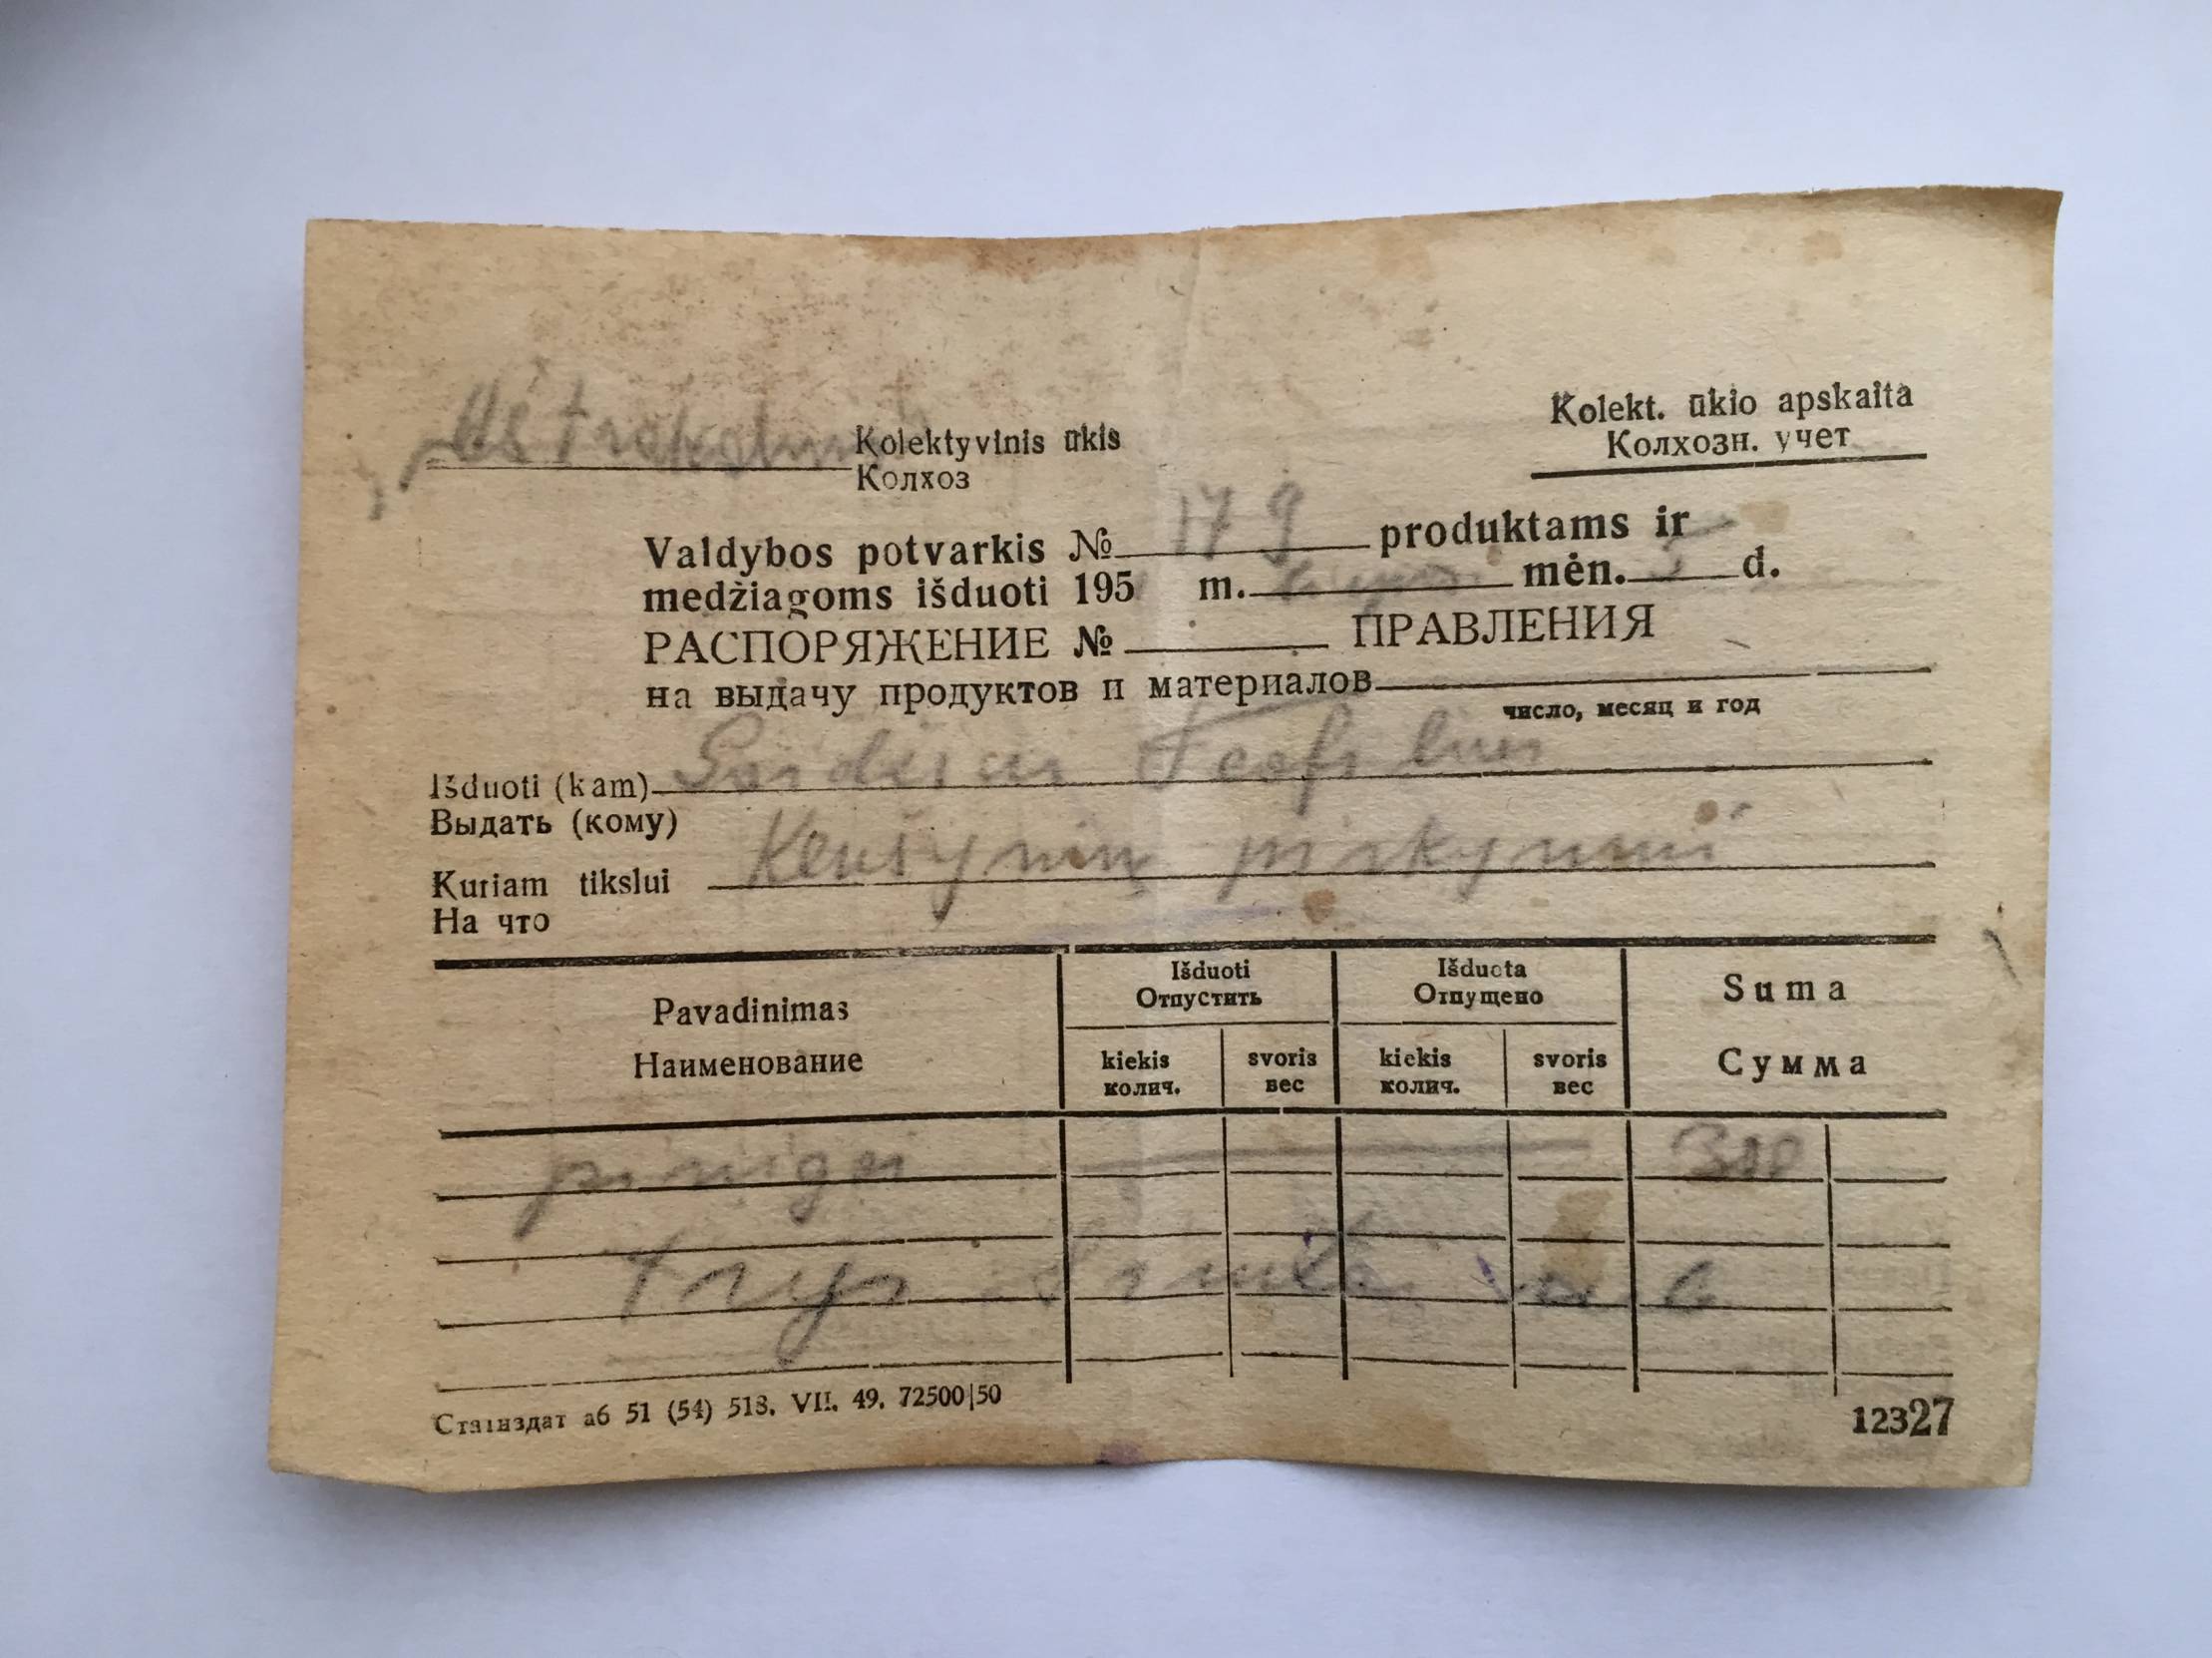 Kolekt. ūkio apskaita
Колхозн. учет
Kolektyvinis ūkis
Колхоз
Valdybos potvarkis № 179 produktams ir
medžiagoms išduoti 195 m. mėn. d.
РАСПОРЯЖЕНИЕ № ПРАВЛЕНИЯ
на выдачу продуктов и материалов
число, месяц и год
Išduoti (kam)
Выдать (кому)
Kuriam tikslui pirkymui
На что
Pavadinimas
Наименование
Išduoti
Отпустить
Išduota
Отпущено
Suma
Сумма
kiekis
колич.
svoris
вес
kiekis
колич.
svoris
вес
pinigai 300
trys šimtai rub
Статиздат аб 51 (54) 518. VII. 49. 72500|50
12327